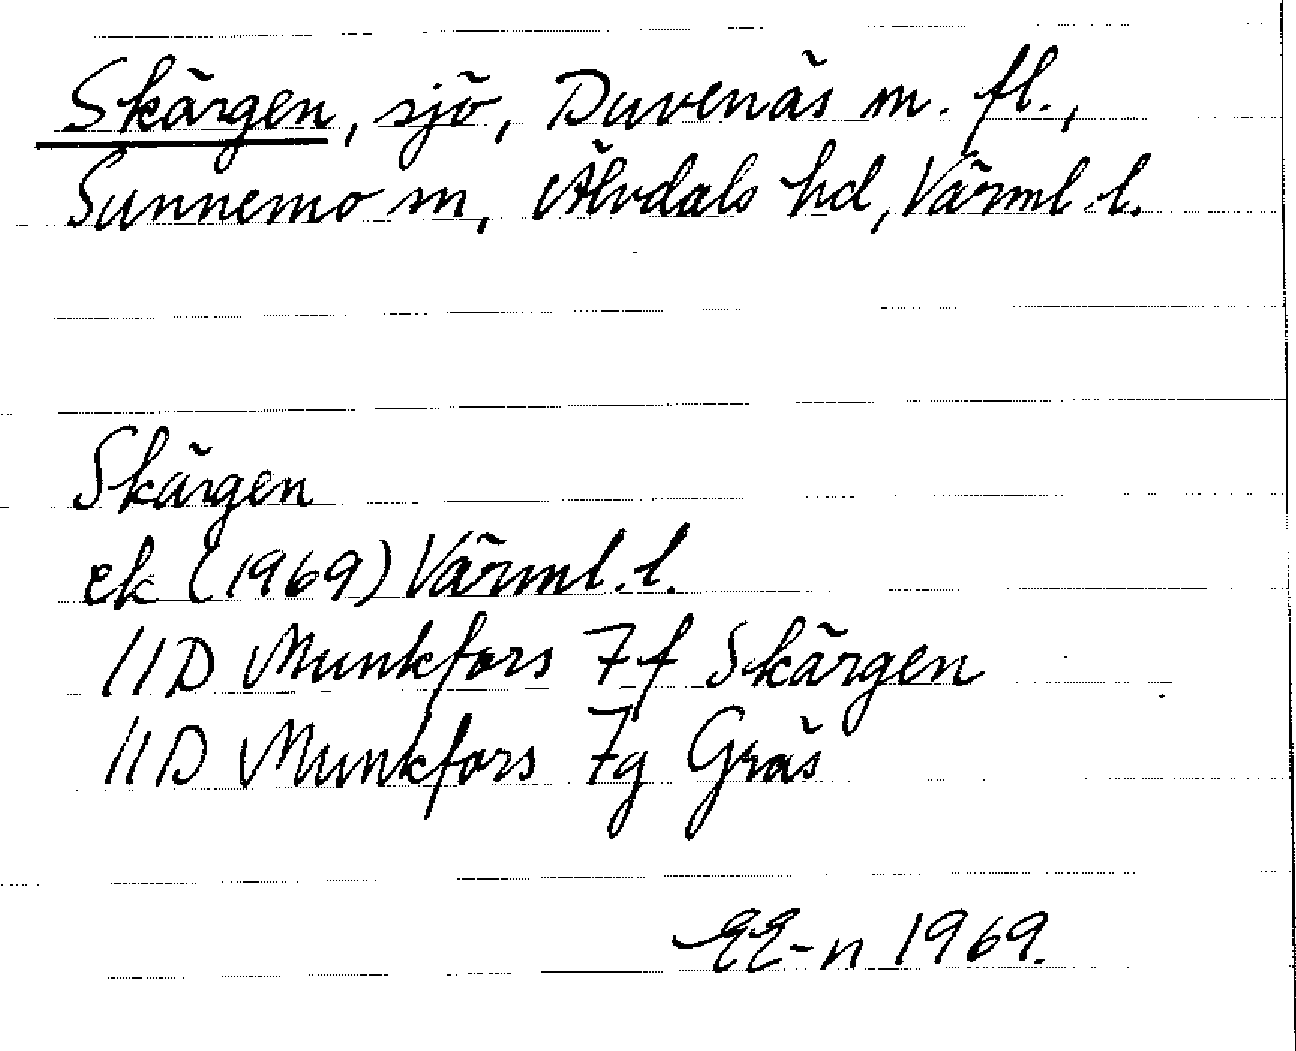 Skärgen, sjö, Duvenäs m. fl.,
Sunnemo sn, Älvdals hd, Värml. l.
Skärgen
ek (1969) Värml. l.
11D Munkfors 7f Skärgen
11D Munkfors 7g Gräs
EE-n 1969.